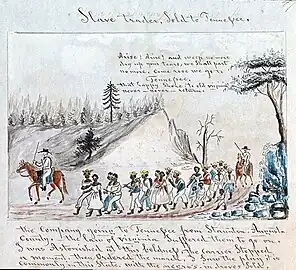 Slave trader, Sold to Tennessee.
Arise! Arise! and weep no more
dry up your tears, we shall part
no more. Come rose we go to
Tennessee.
that happy shore. to old virginia
never - never - return.
the Company going to Tennessee from Staunton. Augusta
County, the Law of Virginia Suffered them to go on.
I was Astonished at this boldness, the Carrier Stopped
a moment, then Ordered the march, I saw the
Commonly in this State, with the negro's in droves Sold.